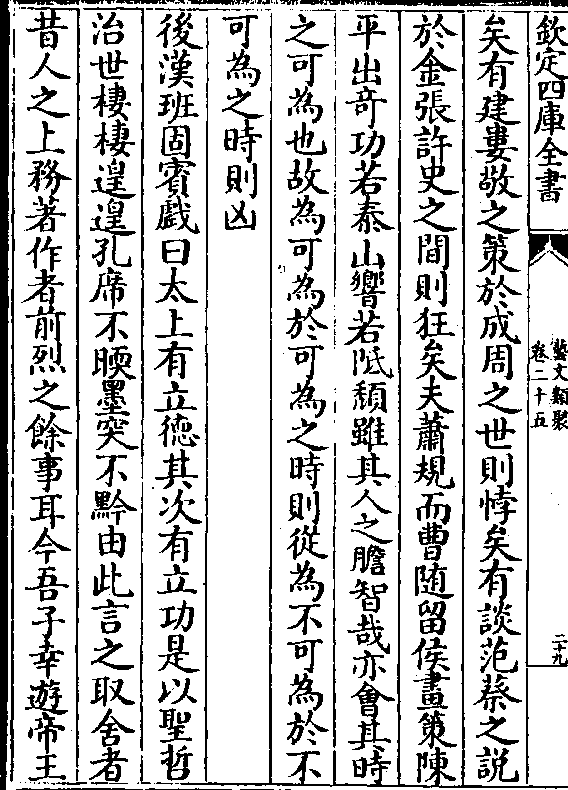 欽定四庫全書
藝文類聚
卷二十五
二十九
矣有建婁敬之策於成周之世則悖矣有談范蔡之説
於金張許史之間則狂矣夫蕭規而曹随留侯畫策陳
平出竒功若泰山響若阺頽雖其人之膽智哉亦會其時
之可為也故為可為於可為之時則從為不可為於不
可為之時則凶
後漢班固賓戲曰太上有立德其次有立功是以聖哲
治世棲棲遑遑孔席不暝墨突不黔由此言之取舍者
昔人之上務著作者前烈之餘事耳今吾子幸遊帝王